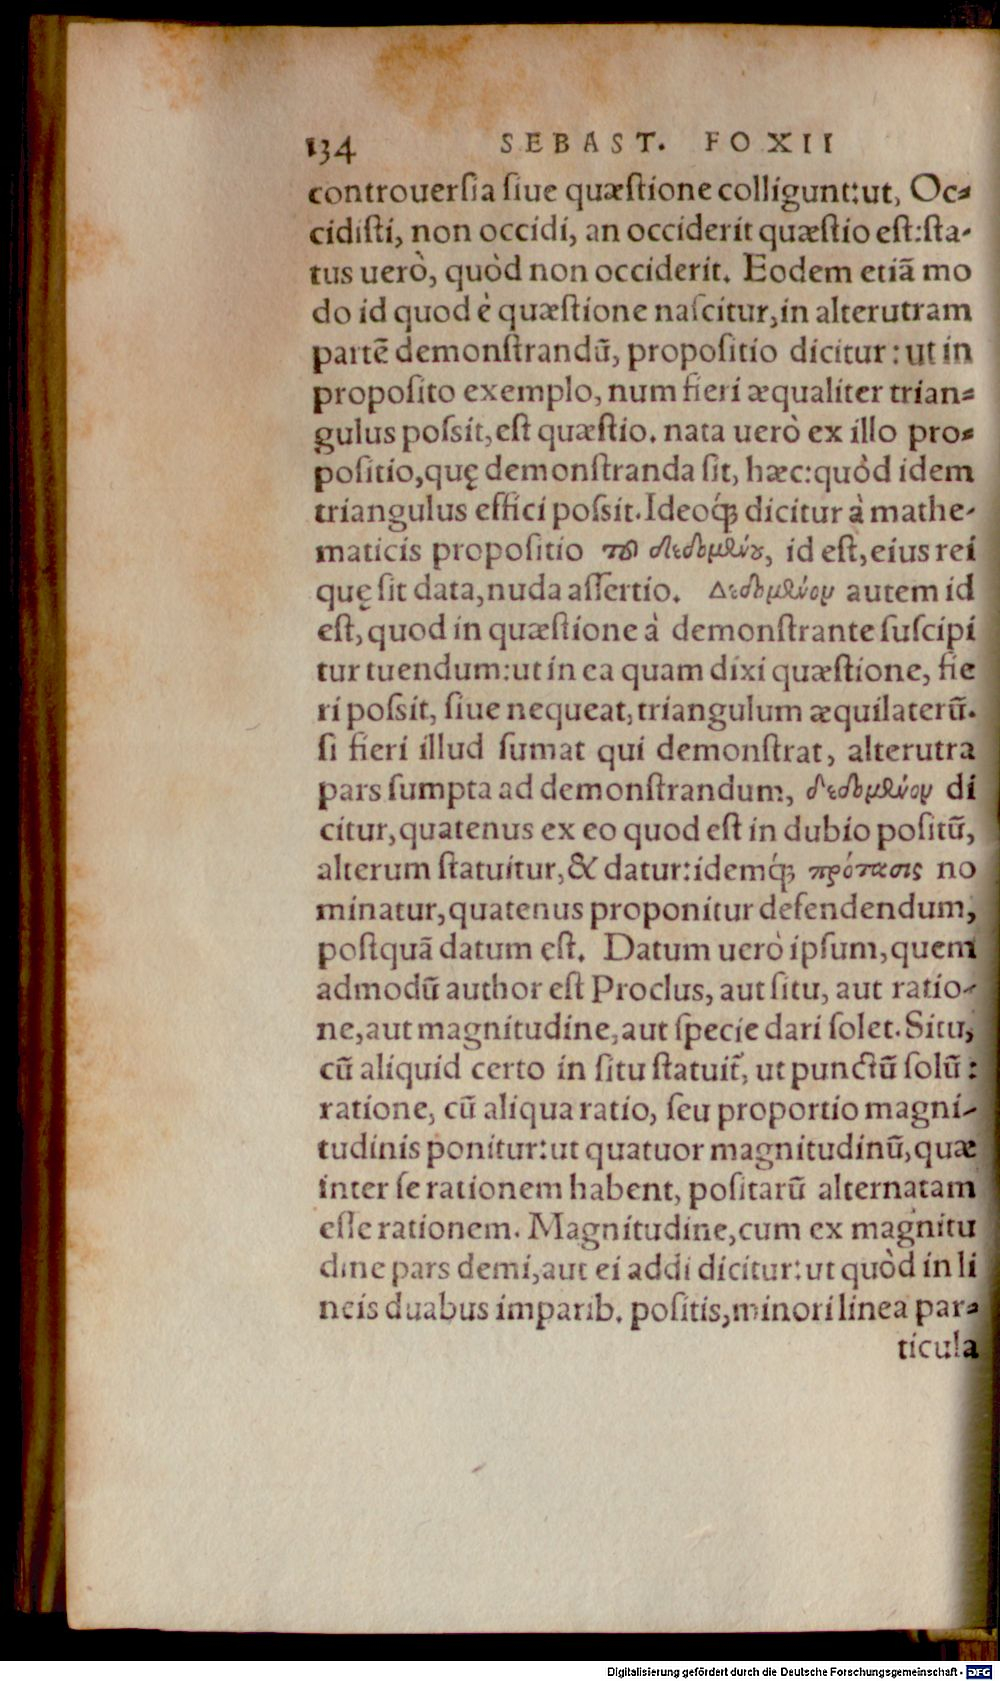 134 SEBAST. FOXII
controuerſia ſiue quæſtione colligunt: ut, Oc-
cidiſti, non occidi, an occiderit quæſtio eſt: ſta-
tus uerò, quòd non occiderit. Eodem etiã mo
do id quod è quæſtione naſcitur, in alterutram
partẽ demonſtrandũ, propoſitio dicitur: ut in
propoſito exemplo, num fieri æqualiter trian-
gulus poſsit, eſt quæſtio. nata uerò ex illo pro-
poſitio, quę demonſtranda ſit, hæc: quòd idem
triangulus effici poſsit. Ideoq́ꝫ dicitur à mathe-
maticis propoſitio τοῦ δεδομένου, id eſt, eius rei
quę ſit data, nuda aſſertio. Δεδομένον autem id
eſt, quod in quæſtione à demonſtrante ſuſcipi
tur tuendum: ut in ea quam dixi quæſtione, fie
ri poſsit, ſiue nequeat, triangulum æquilaterũ.
ſi fieri illud ſumat qui demonſtrat, alterutra
pars ſumpta ad demonſtrandum, δεδομένον di
citur, quatenus ex eo quod eſt in dubio poſitũ,
alterum ſtatuitur, & datur: idemq́ꝫ πρότασις no
minatur, quatenus proponitur defendendum,
poſtquã datum eſt. Datum uerò ipſum, quem
admodũ author eſt Proclus, aut ſitu, aut ratio-
ne, aut magnitudine, aut ſpecie dari ſolet. Situ,
cũ aliquid certo in ſitu ſtatuit̃, ut punctũ ſolũ:
ratione, cũ aliqua ratio, ſeu proportio magni-
tudinis ponitur: ut quatuor magnitudinũ, quæ
inter ſe rationem habent, poſitarũ alternatam
eſſe rationem. Magnitudine, cum ex magnitu
dine pars demi, aut ei addi dicitur: ut quòd in li
neis duabus imparib. poſitis, minori linea par-
ticula
Digitalisierung gefördert durch die Deutsche Forschungsgemeinschaft - DFG